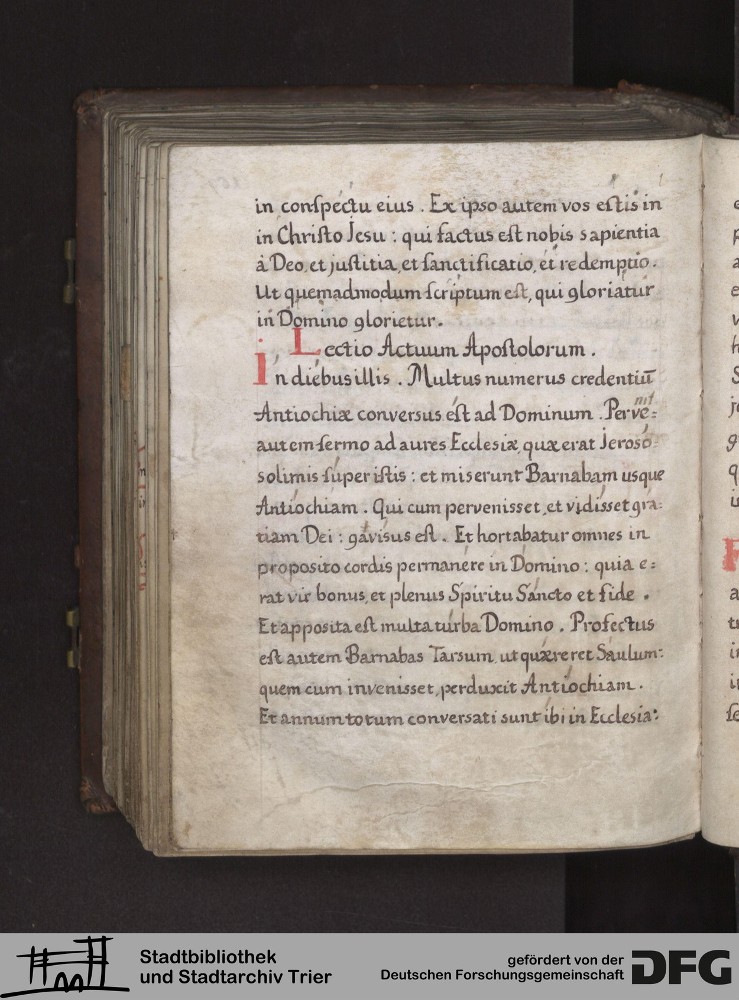 in conſpectu eius . Ex ipso autem vos eſtis in
in Chriſto Jesu : qui factus eſt nobis sapientia
à Deo, et juſtitia, et ſanctificatio, et redemptio .
Ut quemadmodum ſcriptum eſt, qui gloriatur
in Domino glorietur .
Lectio Actuum Apoſtolorum .
In diebus illis . Multus numerus credentiū
Antiochiæ conversus eſt ad Dominum . Perve=
nit
autem ſermo ad aures Ecclesiæ, quæ erat Jeroso=
solimis ſuper iſtis : et miserunt Barnabam usque
Antiochiam . Qui cum pervenisset, et vidisset gra=
tiam Dei : gavisus eſt . Et hortabatur omnes in
proposito cordis permanére in Domino : quia e=
rat vir bonus, et plenus Spiritu Sancto et fide .
Et apposita eſt multa turba Domino . Profectus
eſt autem Barnabas Tarsum, ut quæreret Saulum:
quem cum invenisset, perduxit Antiochiam .
Et annum totum conversati sunt ibi in Ecclesia:
Stadtbibliothek
und Stadtarchiv Trier
gefördert von der
Deutschen Forschungsgemeinschaft
DFG